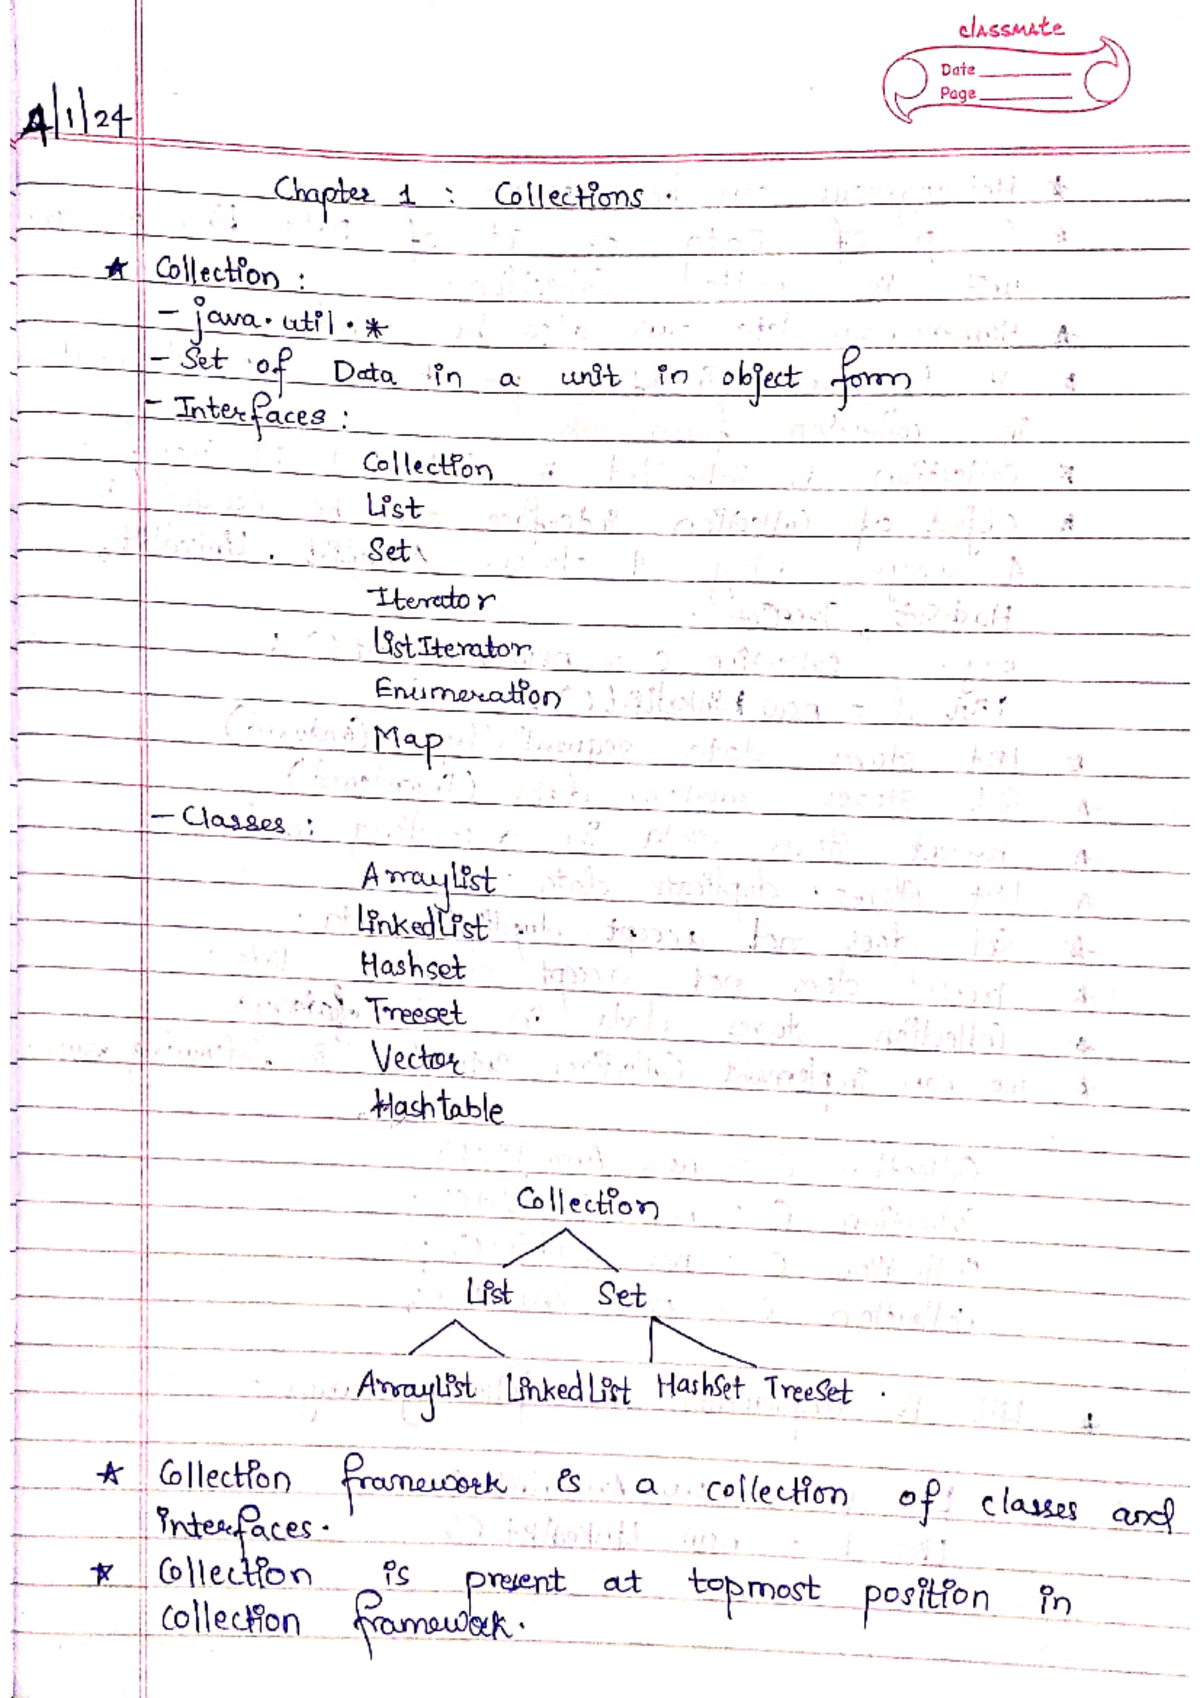 classmate
Date
Page
4/1/24
Chapter 1 : Collections.
★ Collection :
- java.util.*
- Set of Data in a unit in object form
- Interfaces :
Collection
List
Set
Iterator
ListIterator
Enumeration
Map
- Classes :
ArrayList
LinkedList
Hashset
Treeset
Vector
Hashtable
Collection
List Set
ArrayList LinkedList HashSet TreeSet
★ Collection framework is a collection of classes and
interfaces.
★ Collection is present at topmost position in
collection framework.